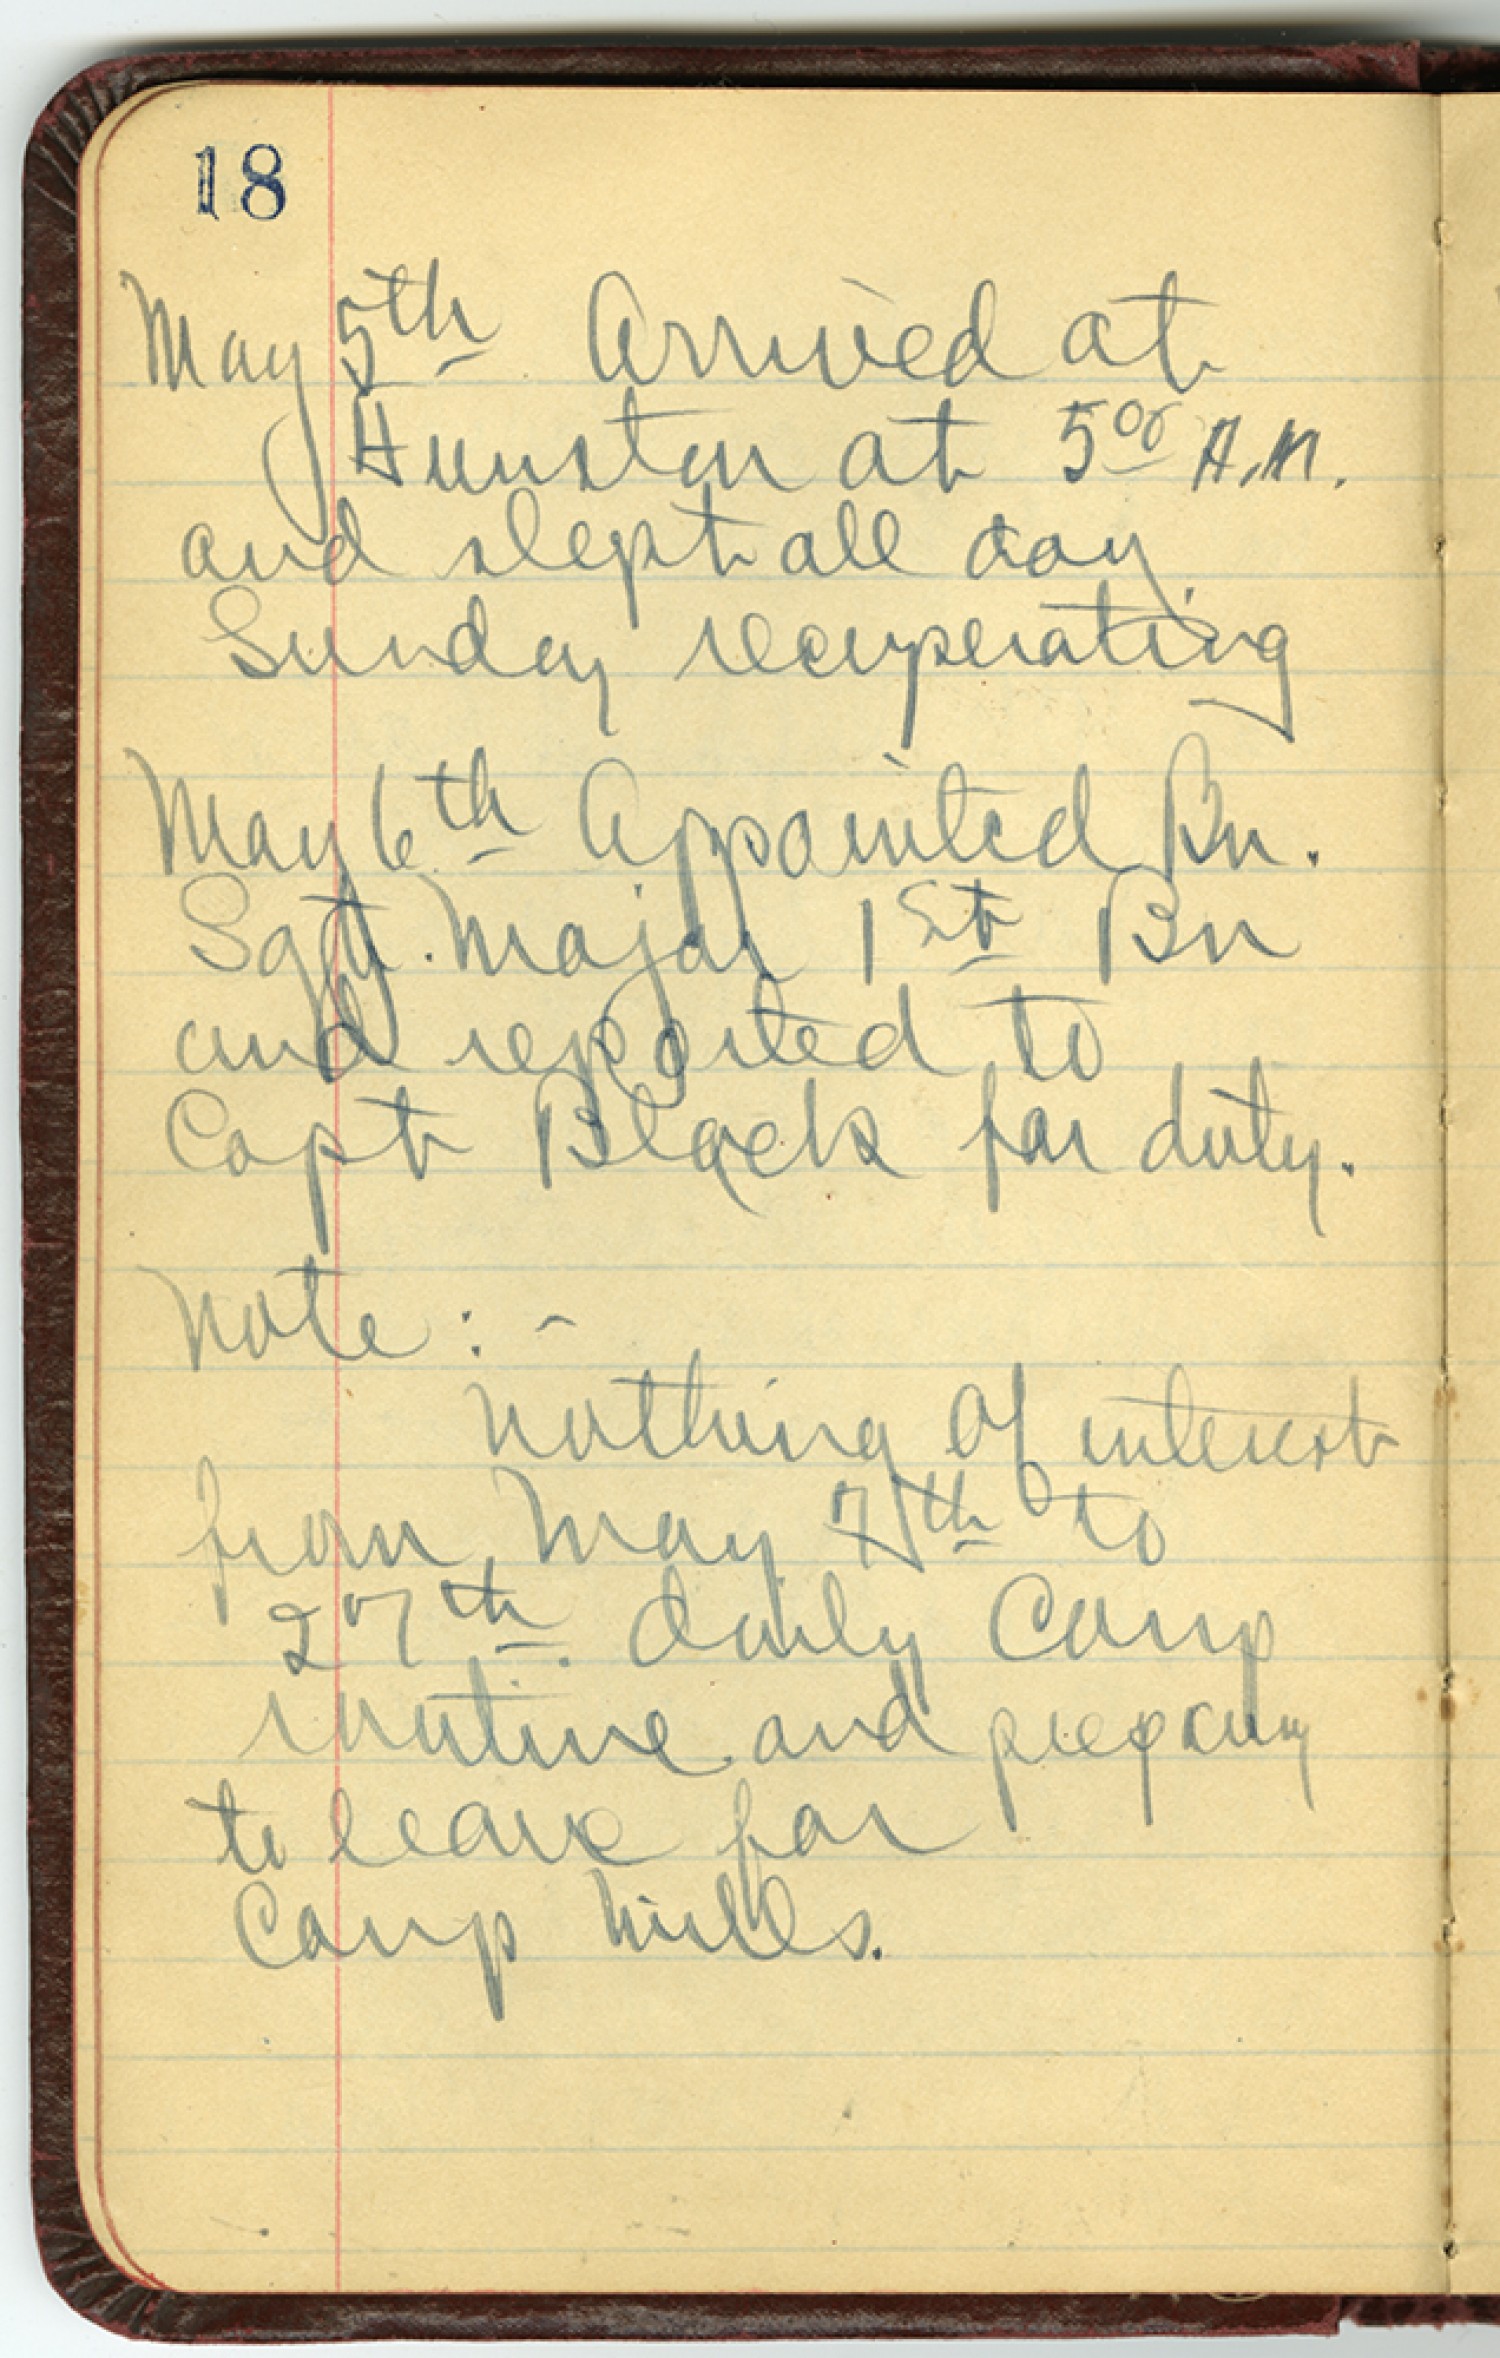 18
May 5th Arrived at
Funston at 5 00 A.M.
and slept all day
Sunday recuperating
May 6th Appointed Bn.
Sgt. Major 1st Bn
and reported to
Capt Black for duty.
Note: -
Nothing of interest
from May 7th to
27th. daily Camp
routine and preparing
to leave for
Camp Mills.